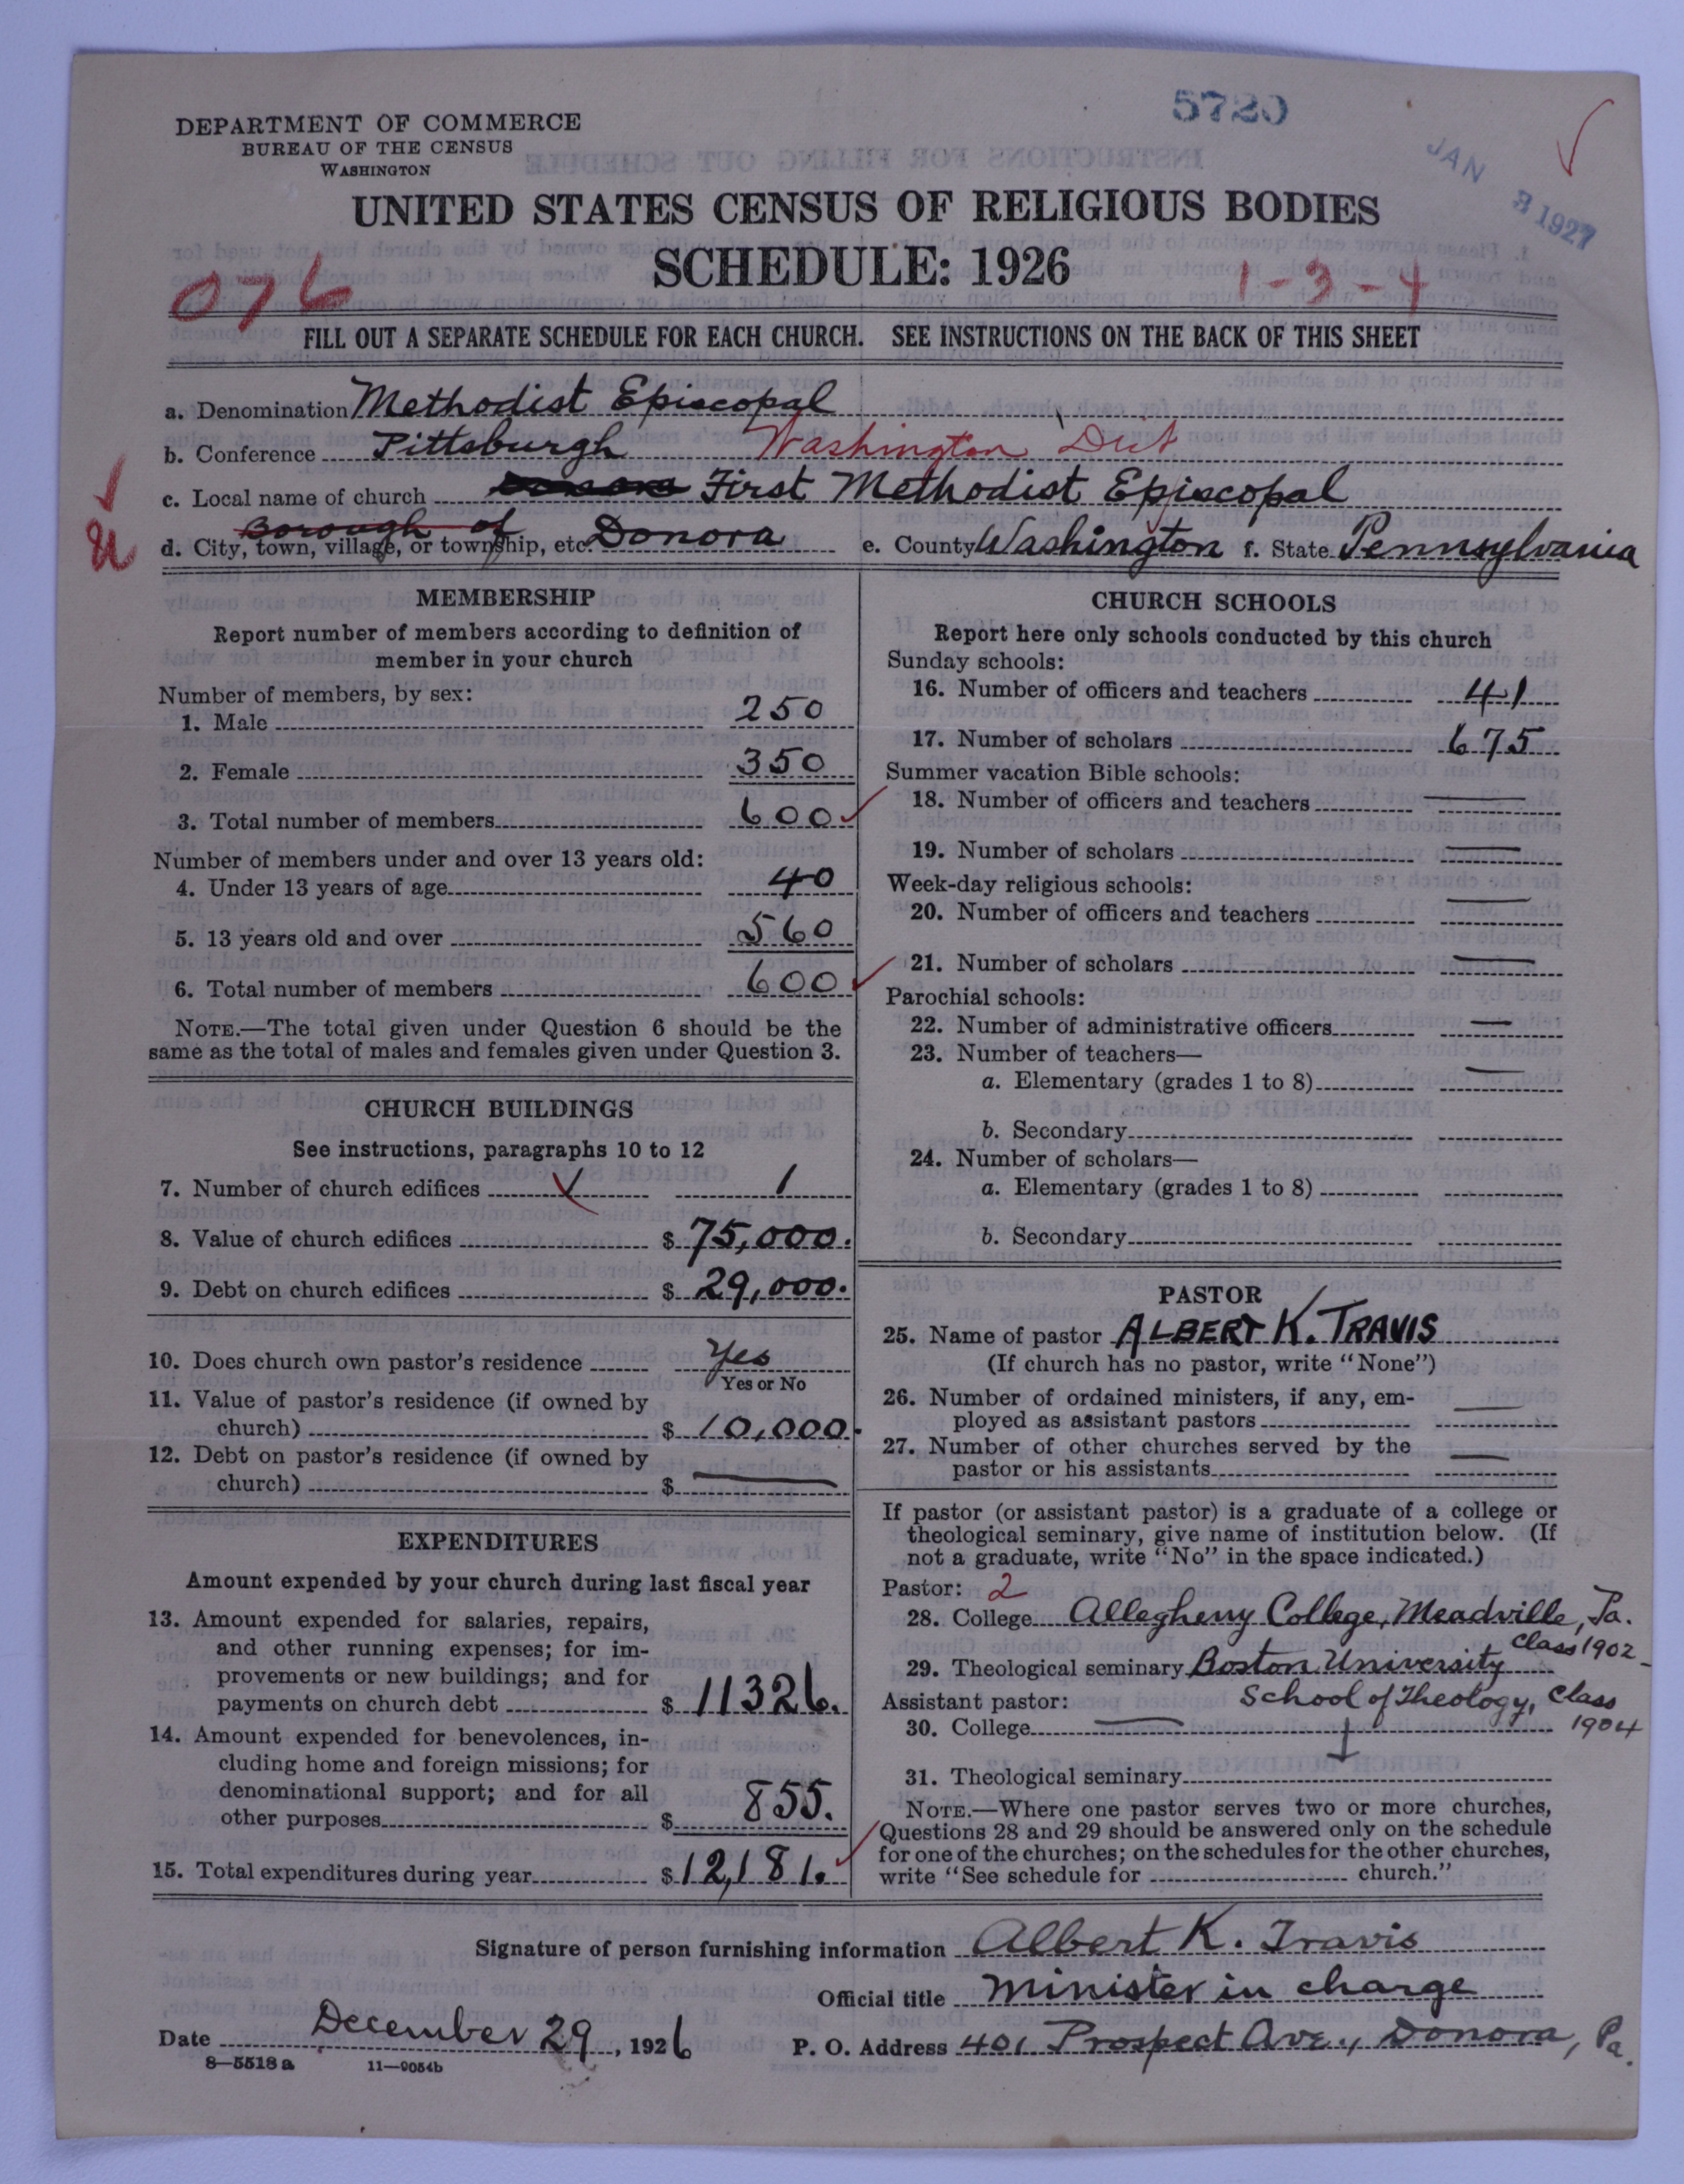 5720
JAN 3 1927
DEPARTMENT OF COMMERCE
BUREAU OF THE CENSUS
WASHINGTON
UNITED STATES CENSUS OF RELIGIOUS BODIES
SCHEDULE: 1926
076
1-3-4
FILL OUT A SEPARATE SCHEDULE FOR EACH CHURCH. SEE INSTRUCTIONS ON THE BACK OF THIS SHEET
a. Denomination Methodist Episcopal
b. Conference Pittsburgh Washington Dist
c. Local name of church First Methodist Episcopal
Borough of
d. City, town, village, or township, etc. Donora e. County Washington f. State Pennsylvania
MEMBERSHIP
Report number of members according to definition of
member in your church
Number of members, by sex:
1. Male 250
2. Female 350
3. Total number of members 600
Number of members under and over 13 years old:
4. Under 13 years of age 40
5. 13 years old and over 560
6. Total number of members 600
NOTE.—The total given under Question 6 should be the
same as the total of males and females given under Question 3.
CHURCH BUILDINGS
See instructions, paragraphs 10 to 12
7. Number of church edifices 1
8. Value of church edifices $ 75,000.
9. Debt on church edifices $ 29,000.
10. Does church own pastor's residence Yes
Yes or No
11. Value of pastor's residence (if owned by
church) $ 10,000.
12. Debt on pastor's residence (if owned by
church) $ —
EXPENDITURES
Amount expended by your church during last fiscal year
13. Amount expended for salaries, repairs,
and other running expenses; for im-
provements or new buildings; and for
payments on church debt $ 11326.
14. Amount expended for benevolences, in-
cluding home and foreign missions; for
denominational support; and for all
other purposes $ 855.
15. Total expenditures during year $ 12,181.
CHURCH SCHOOLS
Report here only schools conducted by this church
Sunday schools:
16. Number of officers and teachers 41
17. Number of scholars 675
Summer vacation Bible schools:
18. Number of officers and teachers —
19. Number of scholars —
Week-day religious schools:
20. Number of officers and teachers —
21. Number of scholars —
Parochial schools:
22. Number of administrative officers —
23. Number of teachers—
a. Elementary (grades 1 to 8) —
b. Secondary
24. Number of scholars—
a. Elementary (grades 1 to 8)
b. Secondary
PASTOR
25. Name of pastor ALBERT K. TRAVIS
(If church has no pastor, write "None")
26. Number of ordained ministers, if any, em-
ployed as assistant pastors —
27. Number of other churches served by the
pastor or his assistants —
If pastor (or assistant pastor) is a graduate of a college or
theological seminary, give name of institution below. (If
not a graduate, write "No" in the space indicated.)
Pastor: 2
28. College Allegheny College, Meadville, Pa.
Class 1902
29. Theological seminary Boston University
Assistant pastor: School of Theology, Class
30. College — 1904
31. Theological seminary
NOTE.—Where one pastor serves two or more churches,
Questions 28 and 29 should be answered only on the schedule
for one of the churches; on the schedules for the other churches,
write "See schedule for church."
Signature of person furnishing information Albert K. Travis
Official title Minister in charge
Date December 29, 1926 P. O. Address 401 Prospect Ave., Donora, Pa.
8-5518a 11-9054b